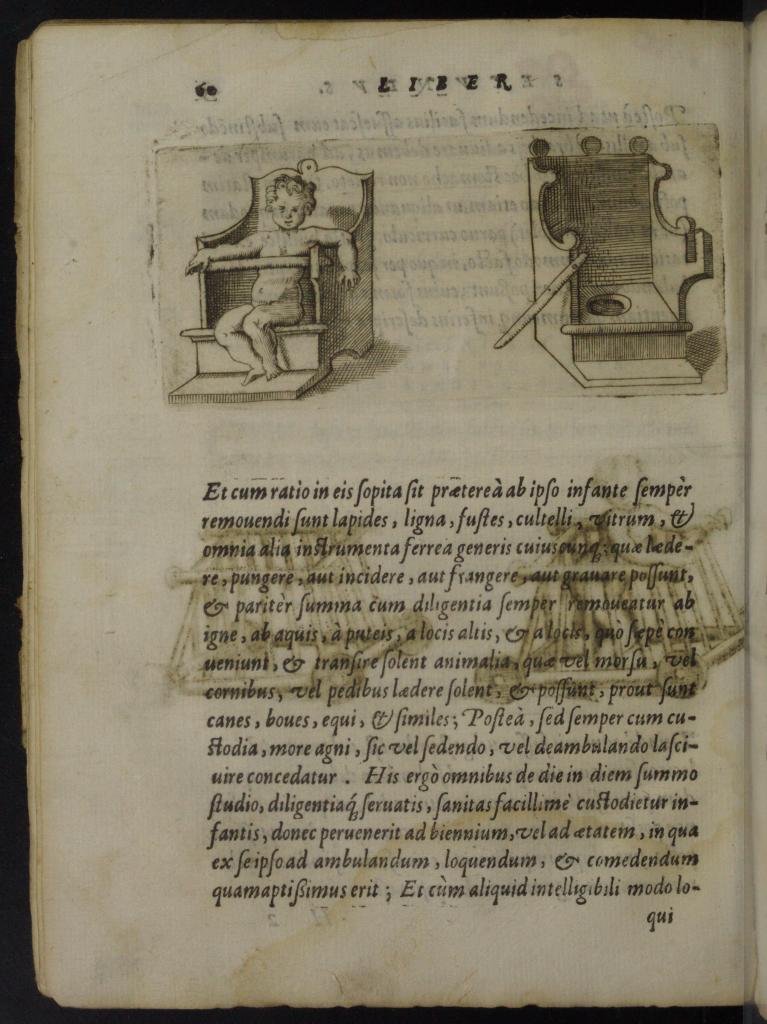 60 LIBER
Et cum ratio in eis sopita sit prætereà ab ipso infante sempèr
remouendi sunt lapides, ligna, fustes, cultelli, vitrum, &
omnia alia instrumenta ferrea generis cuiuscunq; quæ læde-
re, pungere, aut incidere, aut frangere, aut grauare possunt,
& paritèr summa cum diligentia semper remoueatur ab
igne, ab aquis, à puteis, a locis altis, & a locis, quò sæpè con
ueniunt, & transire solent animalia, quæ vel morsu, vel
cornibus, vel pedibus lædere solent, & possunt, prout sunt
canes, boues, equi, & similes; Posteà, sed semper cum cu-
stodia, more agni, sic vel sedendo, vel deambulando lasci-
uire concedatur. His ergò omnibus de die in diem summo
studio, diligentiaq́; seruatis, sanitas facillimè custodietur in-
fantis, donec peruenerit ad biennium, vel ad ætatem, in qua
ex se ipso ad ambulandum, loquendum, & comedendum
quamaptißimus erit; Et cùm aliquid intelligibili modo lo-
qui